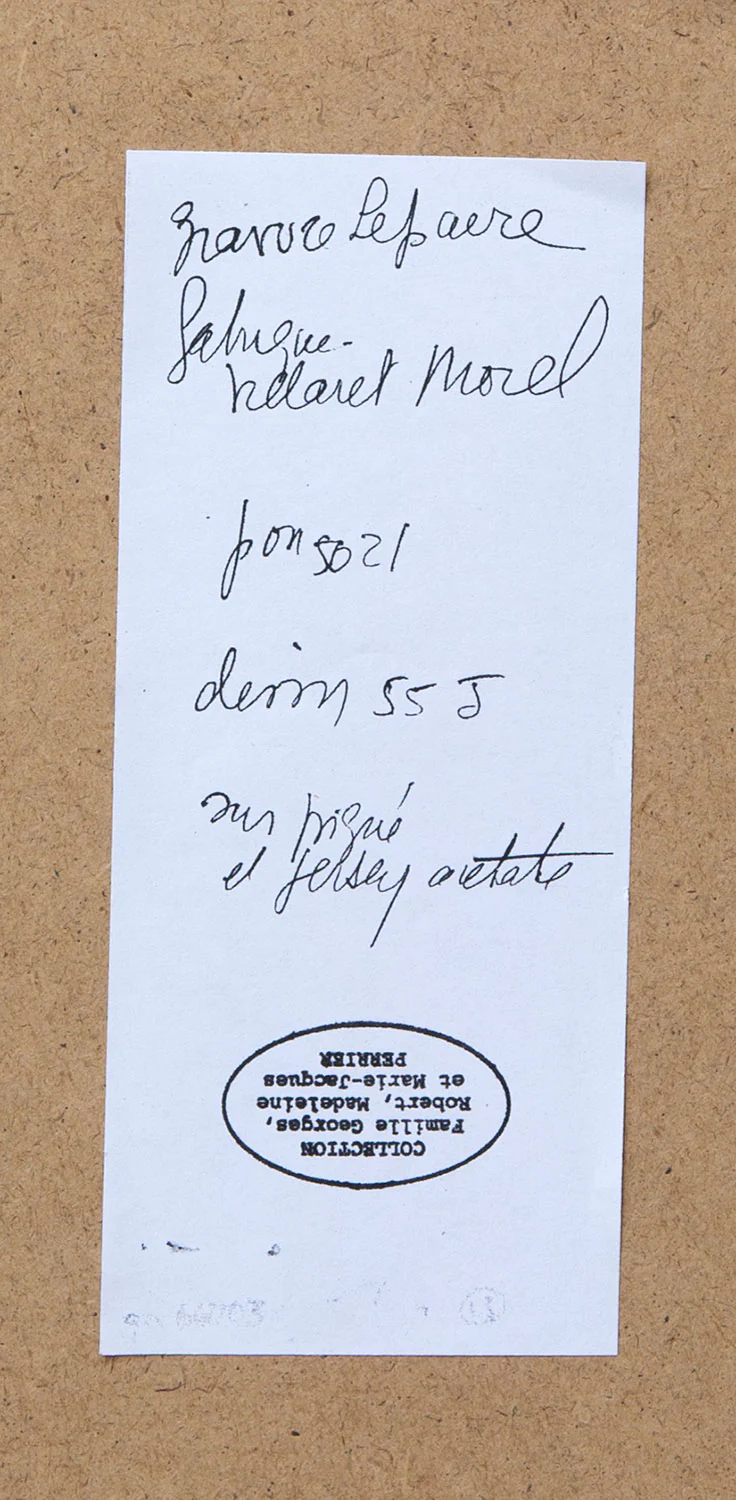 gravure Lepaere
fabrique-
velaret Morel
pon 5021
dessin 55 J
sur piqué
et jersey acetate
COLLECTION
Famille Georges,
Robert, Madeleine
et Marie-Jacques
PERRIER